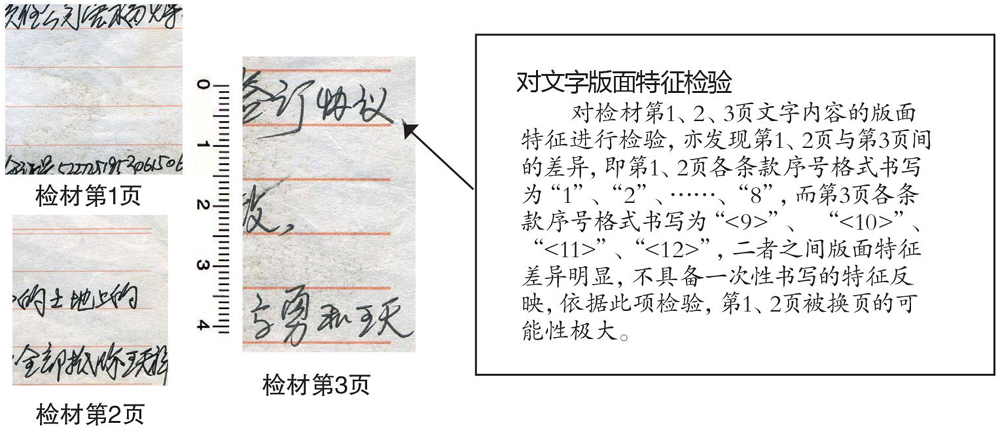 检材第1页
的土地上的
检材第2页
0
1
2
3
4
签订协议
方勇和王天
检材第3页
对文字版面特征检验
对检材第1、2、3页文字内容的版面
特征进行检验,亦发现第1、2页与第3页间
的差异,即第1、2页各条款序号格式书写
为“1”、“2”、……、“8”,而第3页各条
款序号格式书写为“<9>”、 “<10>”、
“<11>”、“<12>”,二者之间版面特征
差异明显,不具备一次性书写的特征反
映,依据此项检验,第1、2页被换页的可
能性极大。